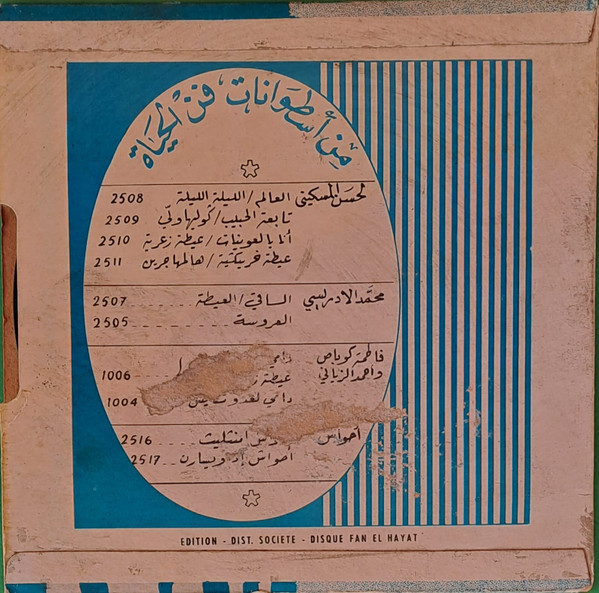 من أسطوانات فن الحياة
لحسن المسكيني العالم / الليلة الليلة 2508
تابعة الحبيب / كوليها ولي 2509
أنا يا لعوينات / عيطة زعرية 2510
عيطة خريبكية / هالمهاجرين 2511
محمد الادريسي الساقي / العيطة 2507
العروسة 2505
فاطمة كوباص
وأحمد الزياني عيطة 1006
1004
أحواش 2516
أحواش 2517
EDITION - DIST. SOCIETE - DISQUE FAN EL HAYAT